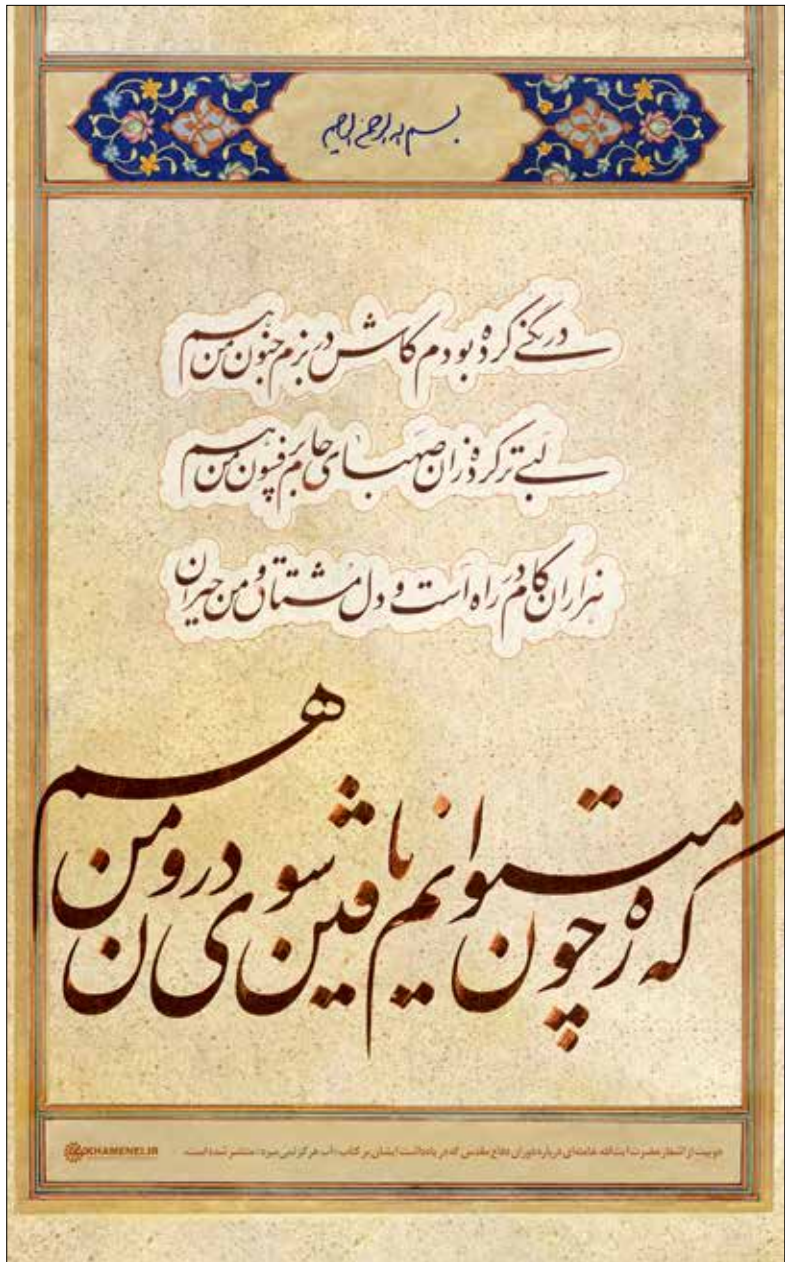 بسم الله الرحمن الرحیم
درنگی کرده بودم کاش در بزم جنون من هم
لبی تر کرده زان صهبای جام پرفسون من هم
هزاران کام در راه است و دل مشتاق و من حیران
که ره چون می‌توانم یافتن سوی درون من هم
دو بیت از اشعار حضرت آیت‌الله خامنه‌ای درباره دوران دفاع مقدس که در یادداشت ایشان بر کتاب «آب هرگز نمی‌میرد» منتشر شده است.
KHAMENEI.IR